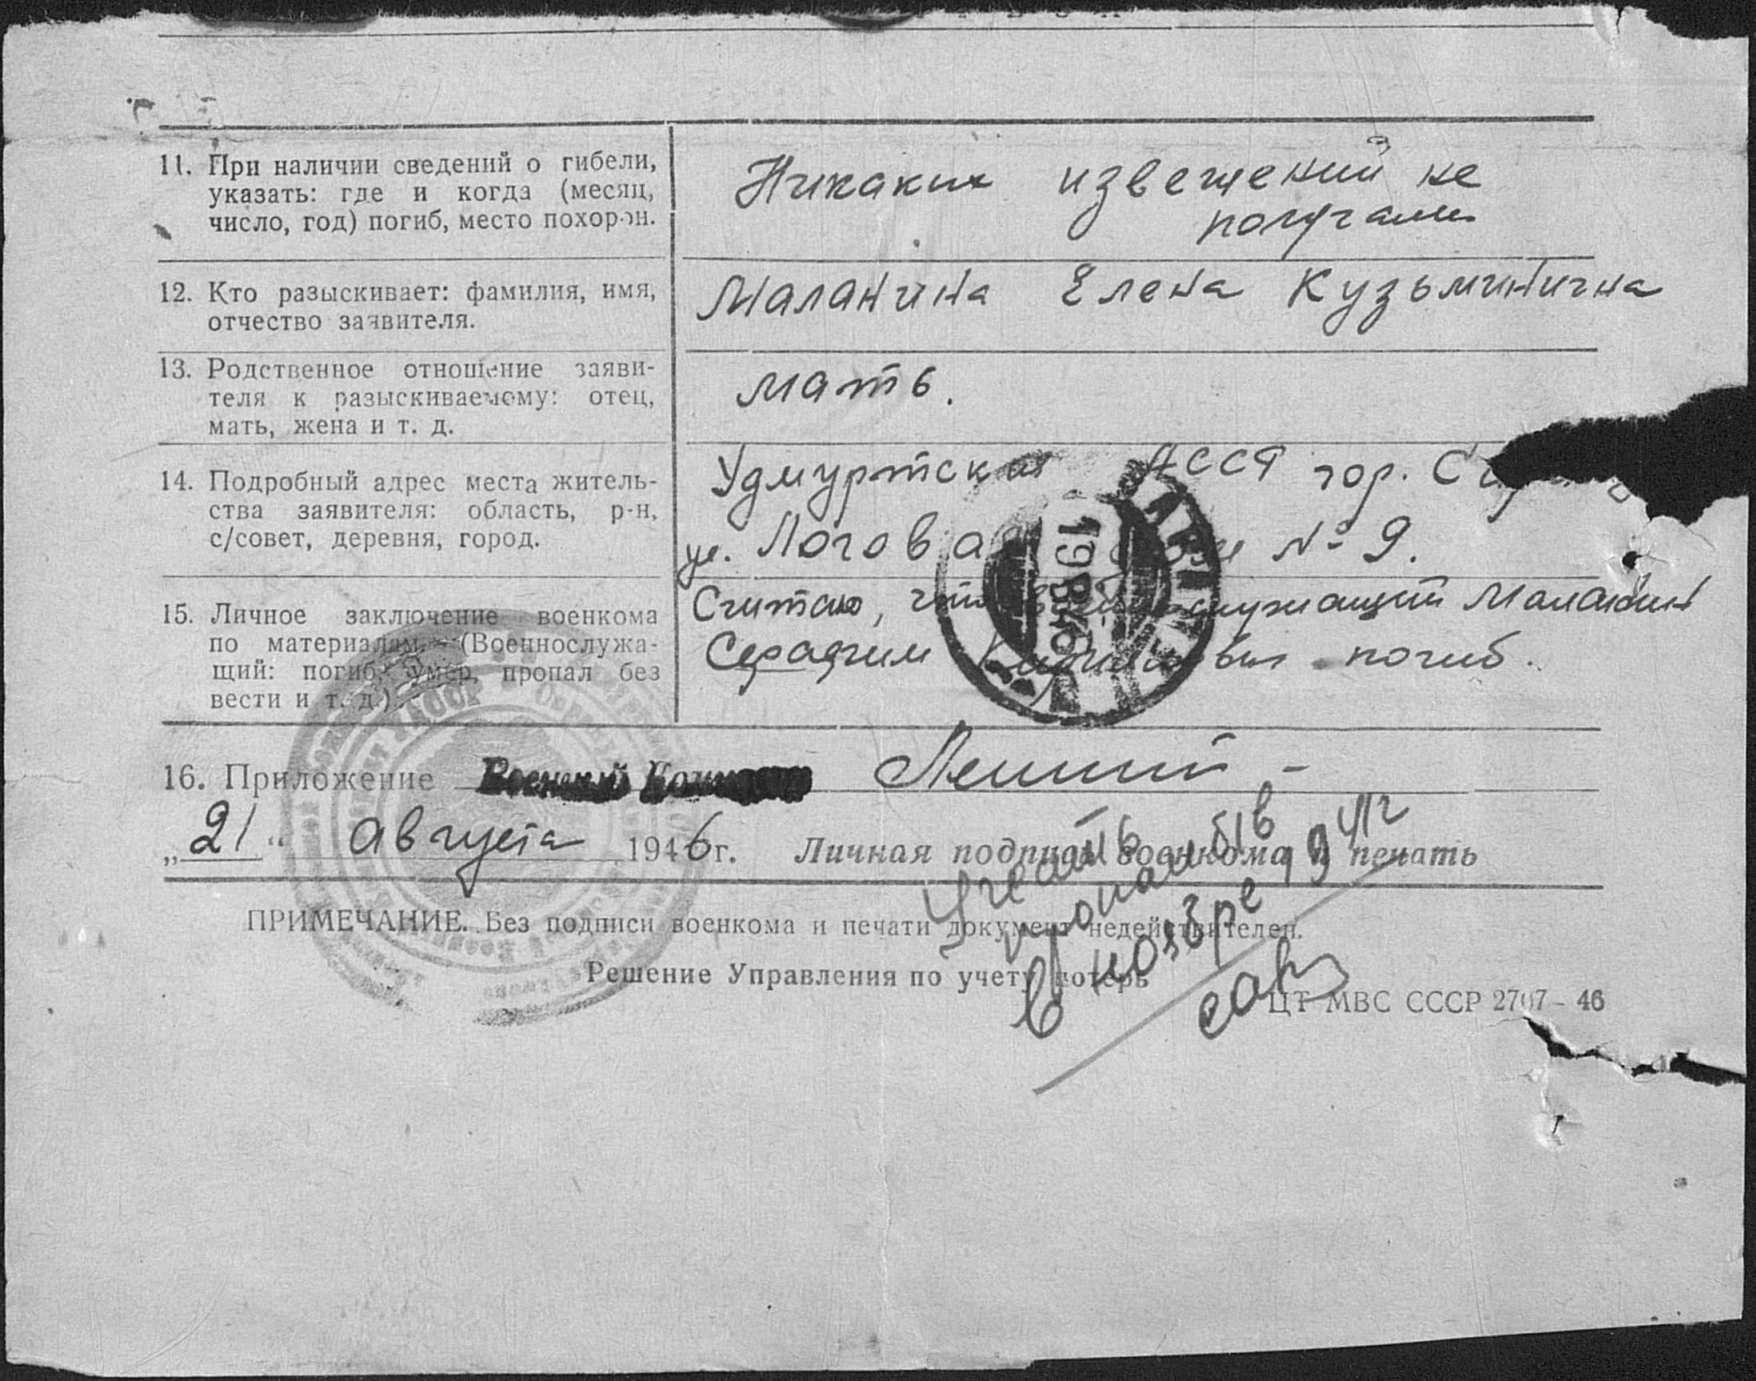 11. При наличии сведений о гибели,
указать: где и когда (месяц,
число, год) погиб, место похорон.
Никаких извещений не
получали
12. Кто разыскивает: фамилия, имя,
отчество заявителя.
Маланина Елена Кузьминична
13. Родственное отношение заяви-
теля к разыскиваемому: отец,
мать, жена и т. д.
Мать.
14. Подробный адрес места житель-
ства заявителя: область, р-н,
с/совет, деревня, город.
Удмуртская АССР гор.
ул. Логовая дом № 9.
15. Личное заключение военкома
по материалам. (Военнослужа-
щий: погиб, умер, пропал без
вести и т. д.)
Считаю, что военнослужащий Маланин
Серафим погиб.
16. Приложение Военный
„21“ августа 1946 г. Личная подпись военкома и печать
ПРИМЕЧАНИЕ. Без подписи военкома и печати документ недействителен.
Решение Управления по учету потерь
Учесть
пропавш б/в
в ноябре 1941г
ЦТ МВС СССР 2707 – 46